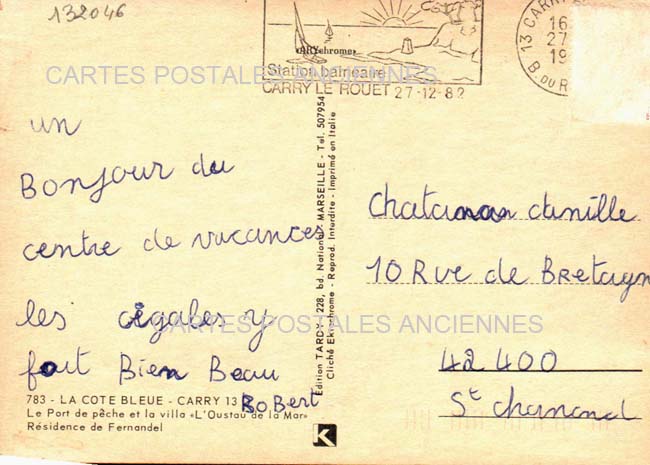 132046
«ARYchrome»
Station balnéaire
CARRY LE ROUET 27-12-82
13 CARRY
16
27
19
B. DU R
CARTES POSTALES ANCIENNES
un
Bonjour du
centre de vacances
les cigales y
fait Bien Beau
BoBert
Edition TARDY, 228, bd. National MARSEILLE - Tel. 507954
Cliché Ektachrome - Reprod. Interdite - Imprimé en Italie
Chatanar
10 Rue de Bretagn
42400
St chamond
CARTES POSTALES ANCIENNES
783 - LA COTE BLEUE - CARRY 13
Le Port de pêche et la villa «L'Oustau de la Mar»
Résidence de Fernandel
K